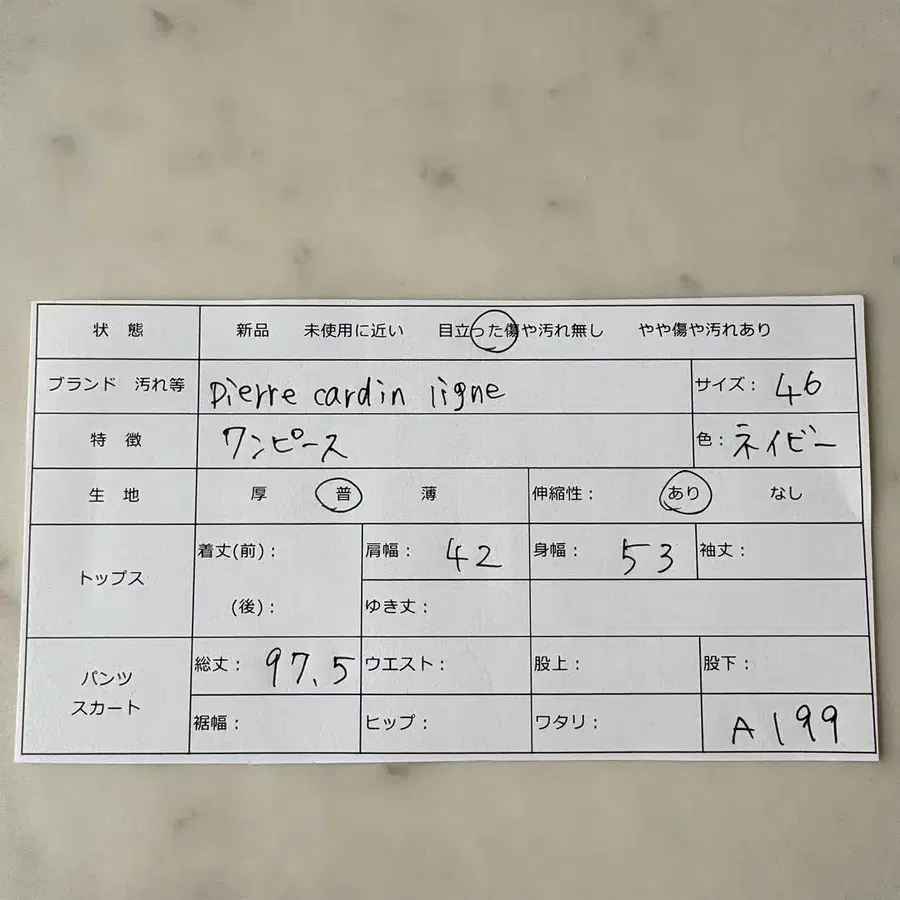 状 態 新品 未使用に近い 目立った傷や汚れ無し やや傷や汚れあり
ブランド 汚れ等 pierre cardin ligne サイズ: 46
特 徴 ワンピース 色: ネイビー
生 地 厚 普 薄 伸縮性: あり なし
トップス 着丈(前): 肩幅: 42 身幅: 53 袖丈:
(後): ゆき丈:
パンツ スカート 総丈: 97.5 ウエスト: 股上: 股下:
裾幅: ヒップ: ワタリ: A199